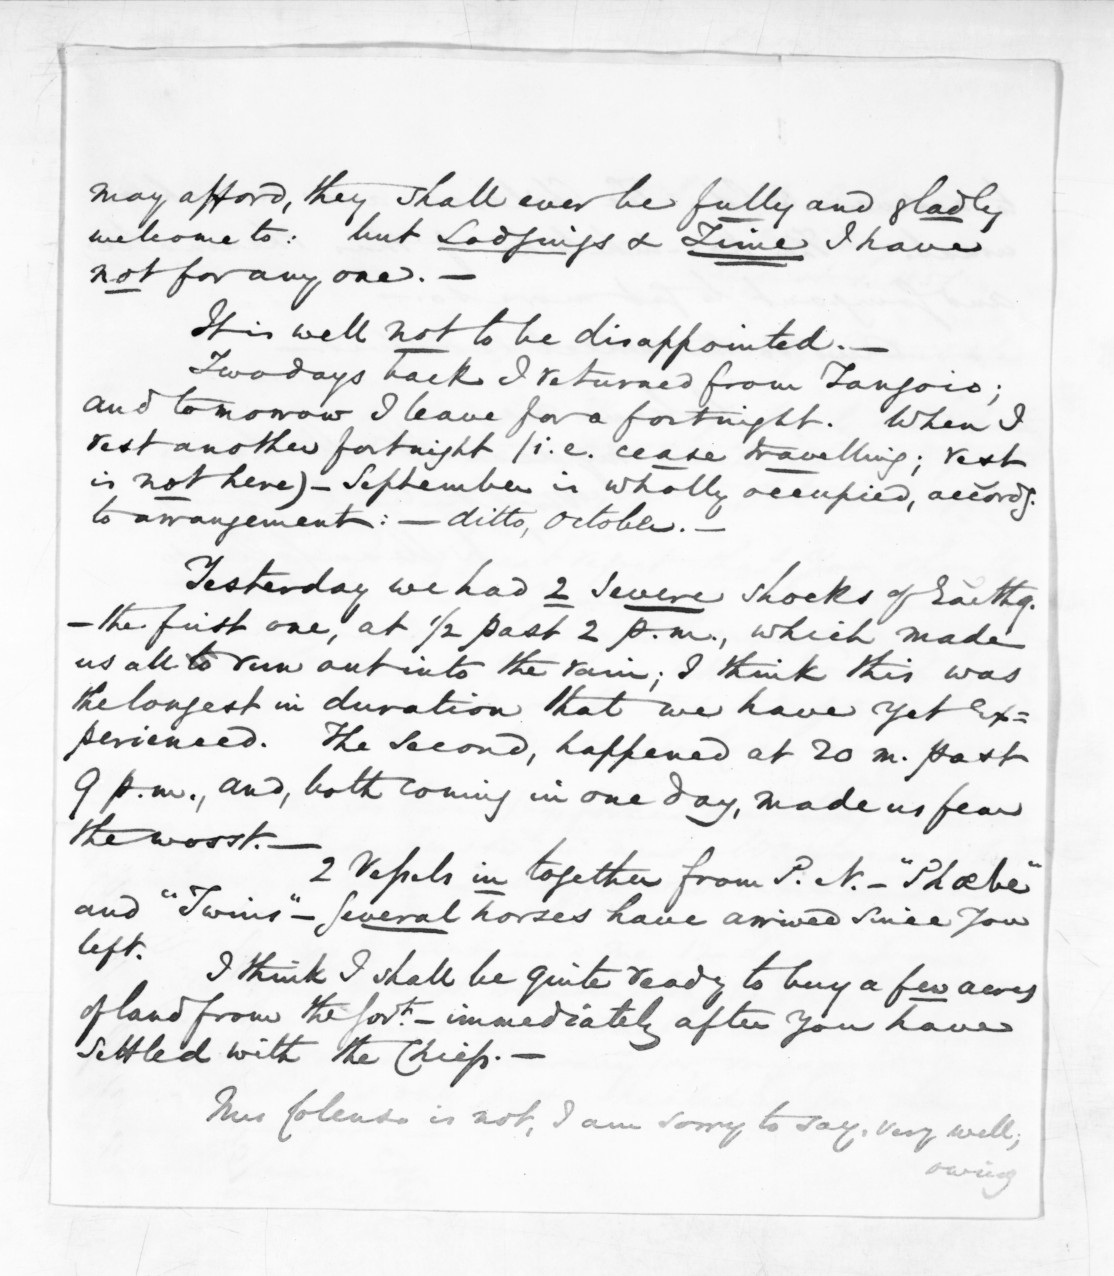 may afford, they shall ever be fully and gladly
welcome to: but Lodgings & Time I have
not for any one. —
It is well not to be disappointed. —
Two days back I returned from Tangoio;
and tomorrow I leave for a fortnight. When I
rest another fortnight (i.e. cease travelling; rest
is not here) — September is wholly occupied, accordg.
to arrangement: — ditto, October. —
Yesterday we had 2 severe shocks of Earthq.
— the first one, at ½ past 2 p.m., which made
us all to run out into the rain; I think this was
the longest in duration that we have yet ex=
perienced. The second, happened at 20 m. past
9 p.m., and, both coming in one day, made us fear
the worst. —
2 Vessels in together from P. N. — "Phœbe"
and "Twins" — several horses have arrived since you
left.
I think I shall be quite ready to buy a few acres
of land from the Govt. — immediately after you have
settled with the Chiefs. —
Mrs Colenso is not, I am sorry to say, very well;
owing